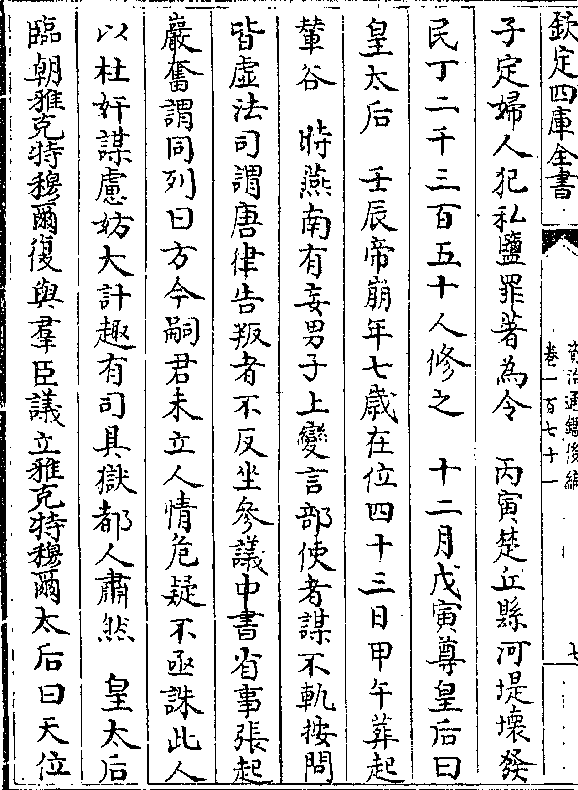 欽定四庫全書
資治通鑑後編
卷一百七十一
七
子定婦人犯私鹽罪著為令　丙寅楚丘縣河堤壞發
民丁二千三百五十人修之　十二月戊寅尊皇后曰
皇太后　壬辰帝崩年七歲在位四十三日甲午葬起
輦谷　時燕南有妄男子上變言部使者謀不軌按問
皆虛法司謂唐律告叛者不反坐參議中書省事張起
巖奮謂同列曰方今嗣君未立人情危疑不亟誅此人
以杜奸謀慮妨大計趣有司具獄都人肅然　皇太后
臨朝雅克特穆爾復與羣臣議立雅克特穆爾太后曰天位